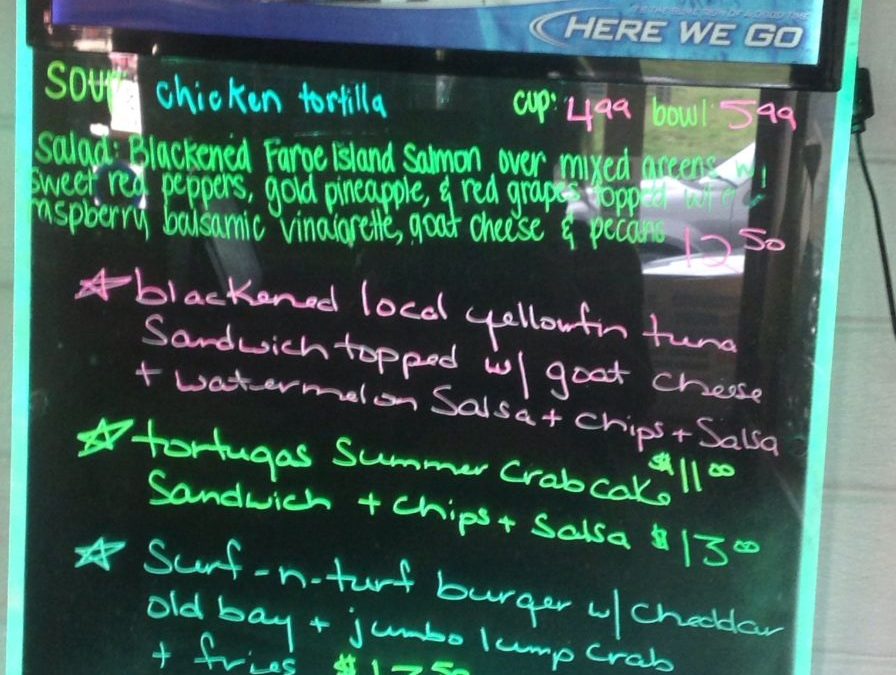 HERE WE GO
Soup: chicken tortilla cup: 4.99 bowl: 5.99
Salad: Blackened Faroe Island Salmon over mixed greens w/
sweet red peppers, gold pineapple, & red grapes topped w/
raspberry balsamic vinaigrette, goat cheese & pecans 12 50
☆ blackened local yellowfin tuna
Sandwich topped w/ goat cheese
+ watermelon Salsa + chips + Salsa
$11 00
☆ tortugas Summer Crab cake
Sandwich + chips + Salsa $13 00
☆ Surf-n-turf burger w/ cheddar
old bay + jumbo lump crab
+ fries